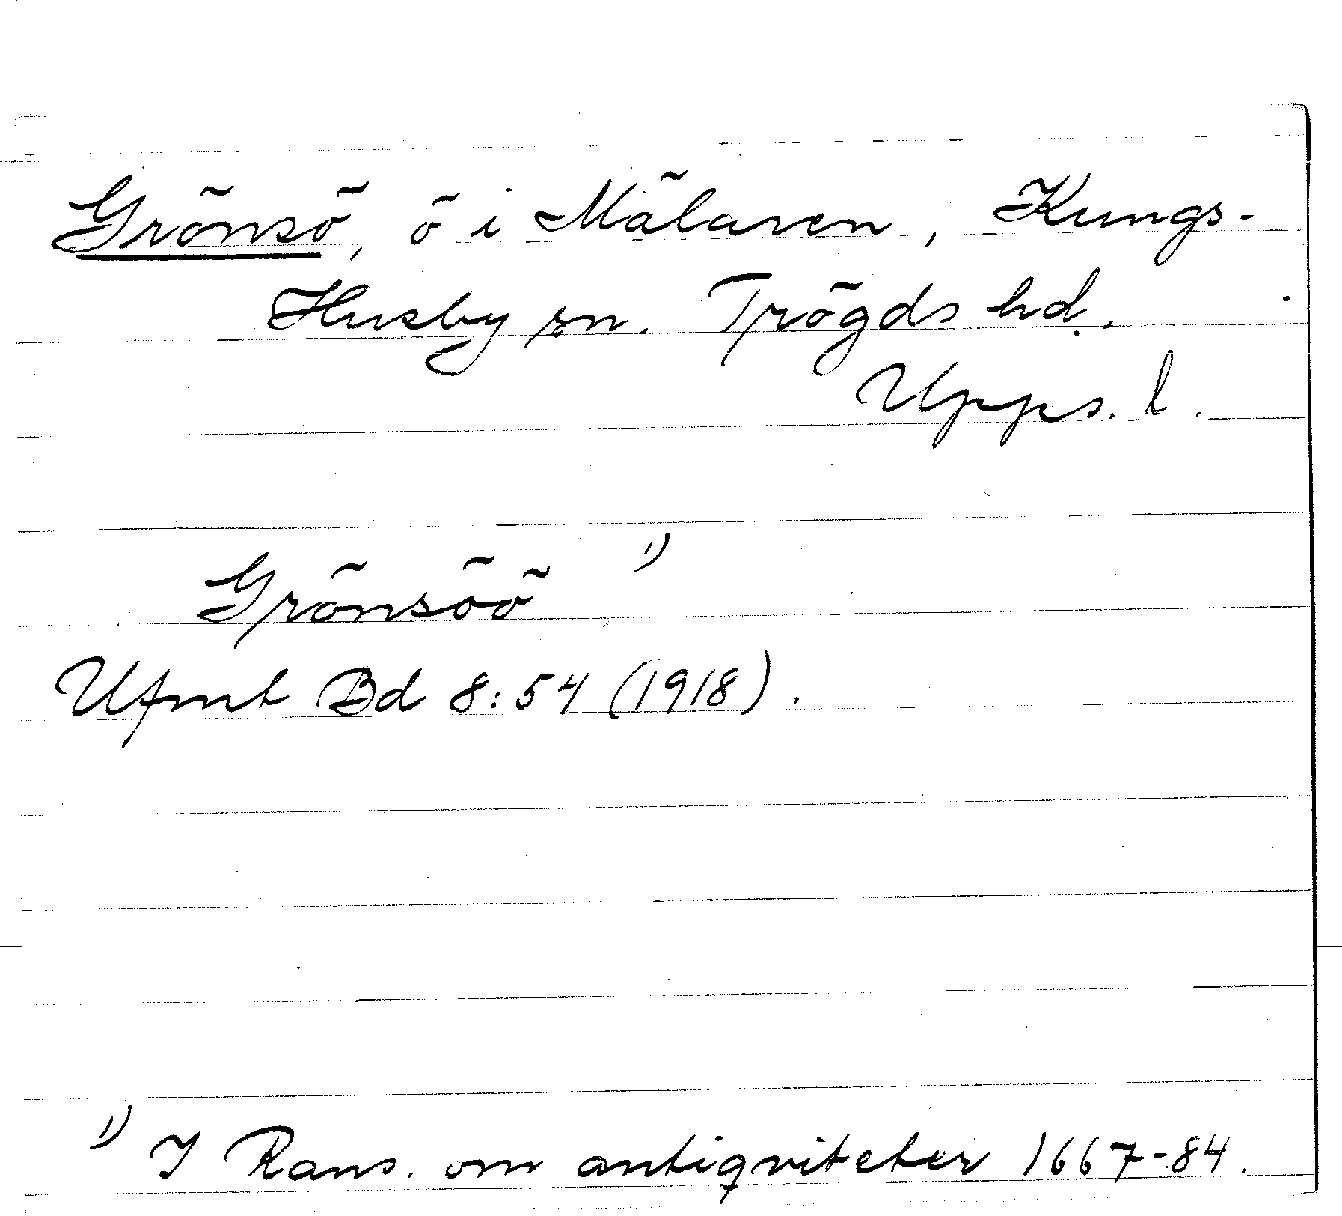 Grönsö, ö i Mälaren, Kungs-
Husby sn. Trögds hd.
Upps. l.
Grönsöö 1)
Ufmt Bd 8:54 (1918).
1) I Rans. om antiqviteter 1667-84.